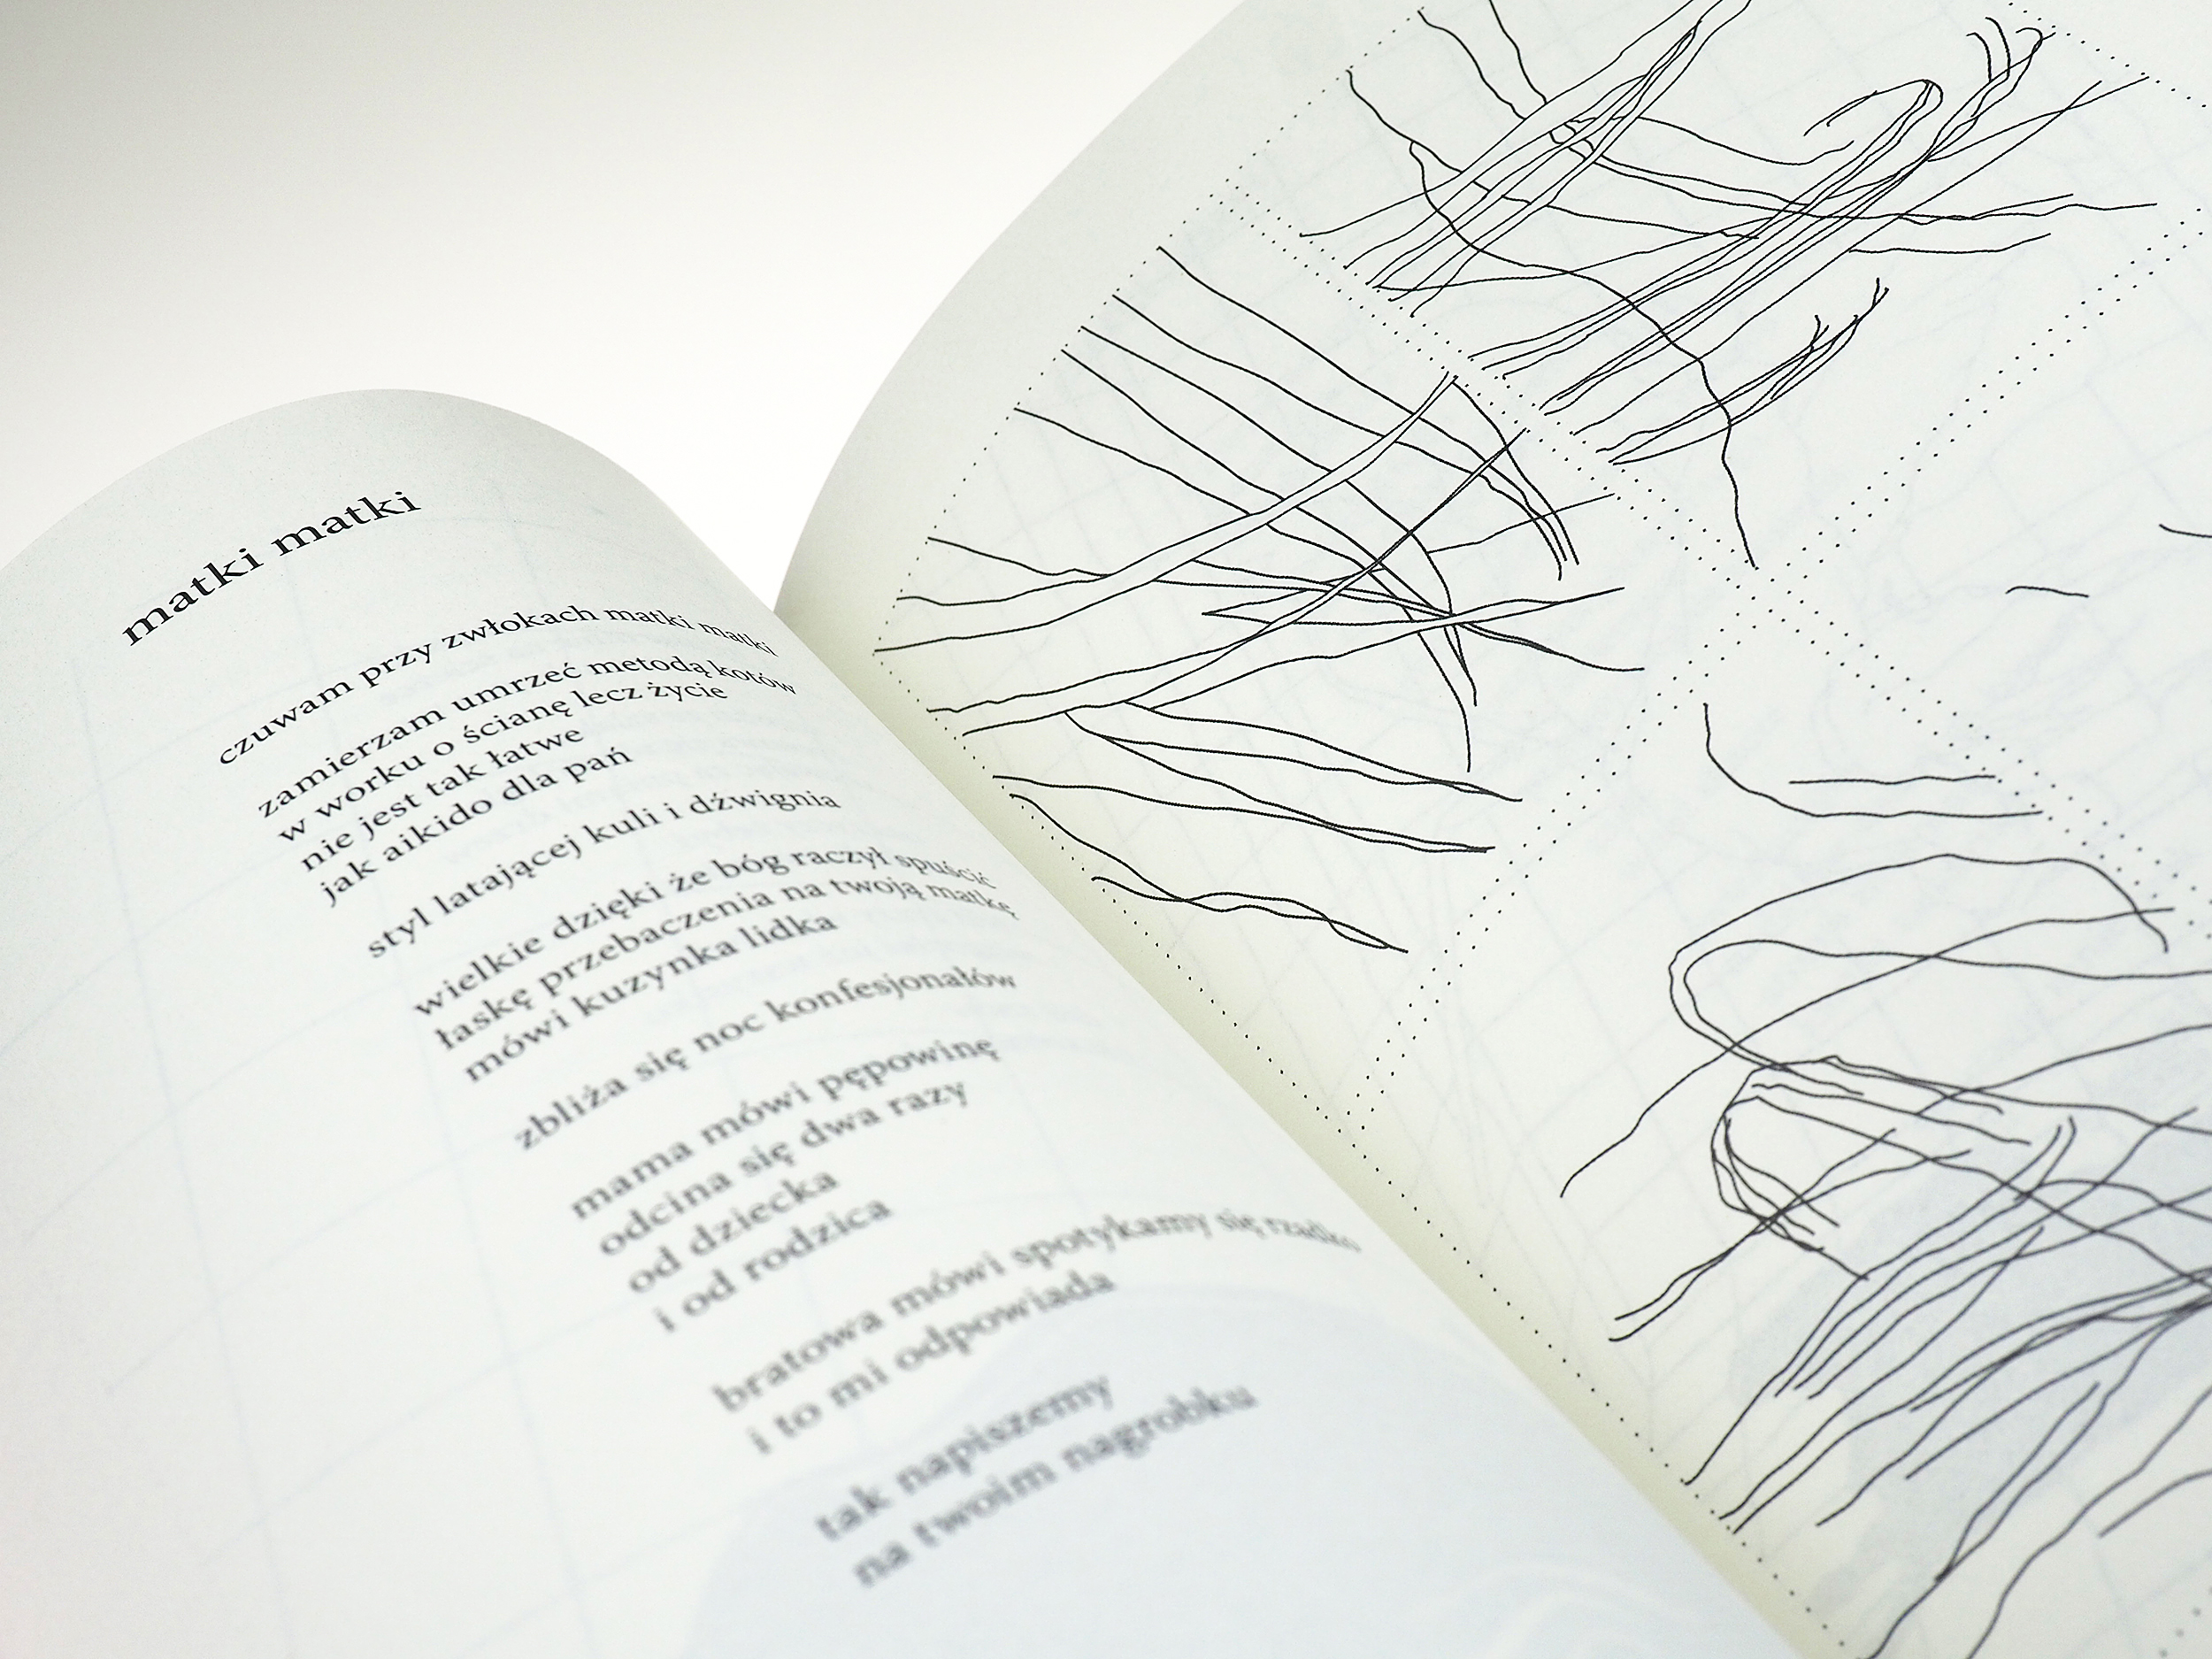 matki matki
czuwam przy zwłokach matki matki
zamierzam umrzeć metodą kotów
w worku o ścianę lecz życie
nie jest tak łatwe
jak aikido dla pań
styl latającej kuli i dźwignia
wielkie dzięki że bóg raczył spuścić
łaskę przebaczenia na twoją matkę
mówi kuzynka lidka
zbliża się noc konfesjonałów
mama mówi pępowinę
odcina się dwa razy
od dziecka
i od rodzica
bratowa mówi spotykamy się rzadko
i to mi odpowiada
tak napiszemy
na twoim nagrobku